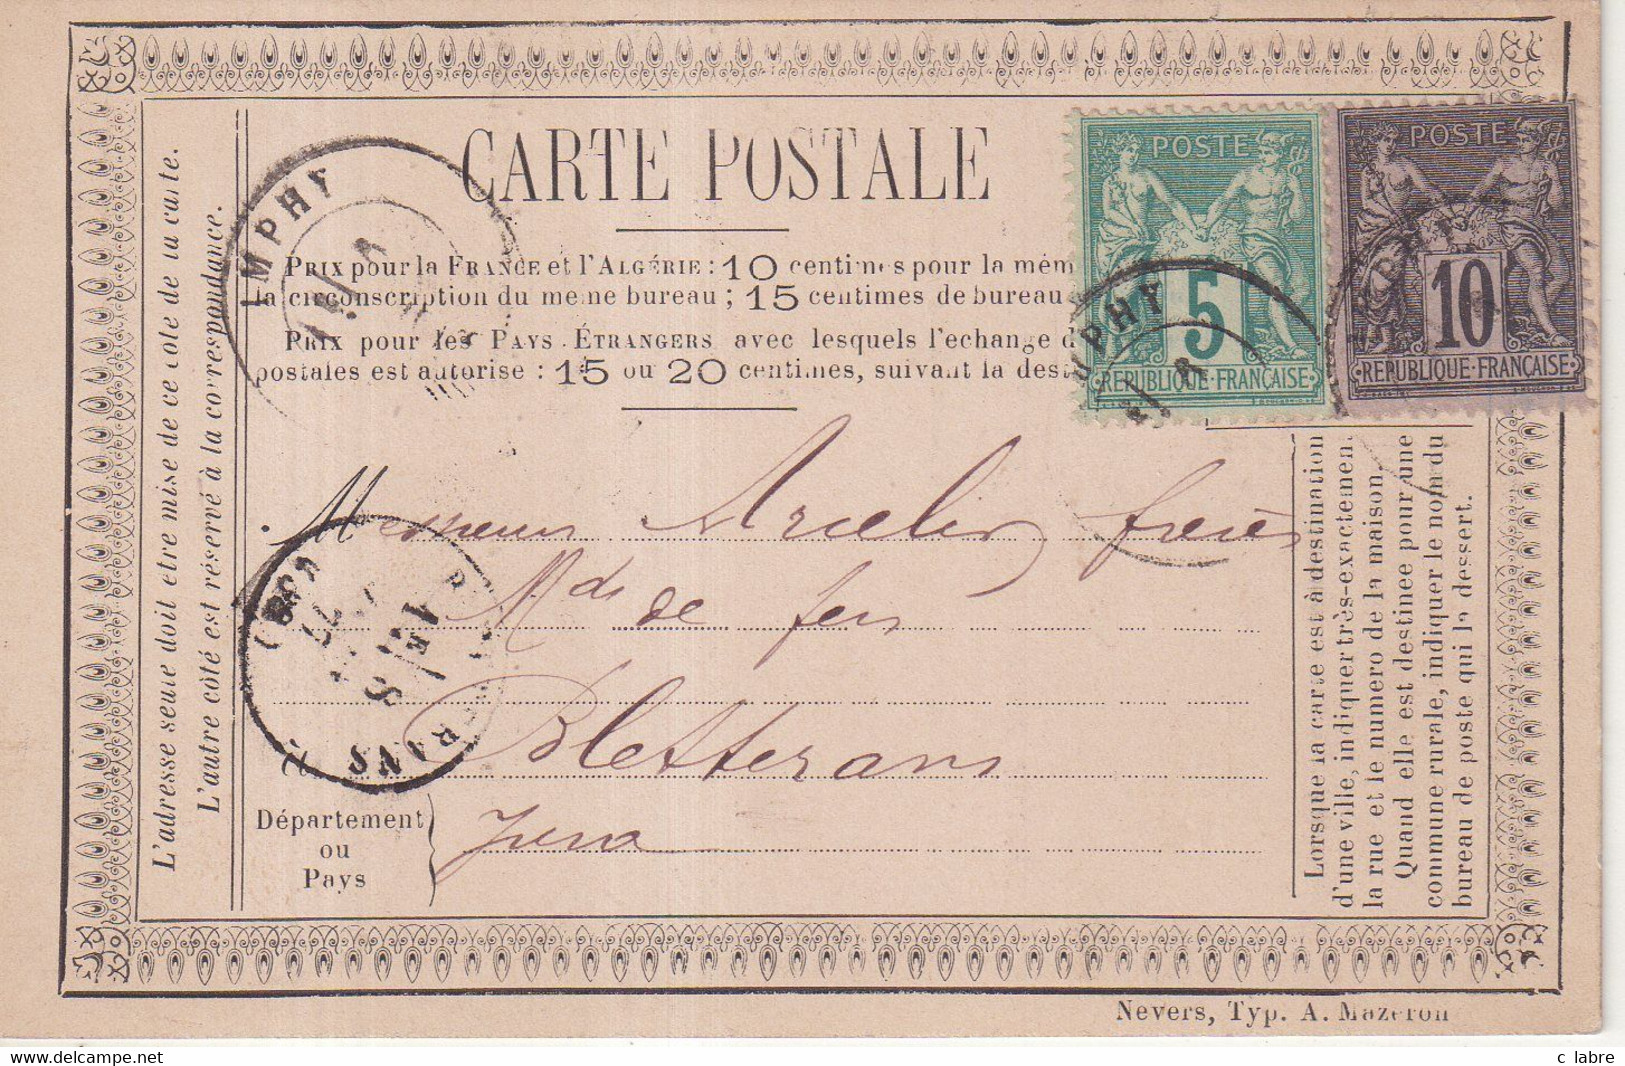 CARTE POSTALE
PRIX pour la FRANCE et l'ALGÉRIE : 10 centimes pour la mêm
la circonscription du meme bureau ; 15 centimes de bureau
PRIX pour les PAYS ÉTRANGERS avec lesquels l'echange d
postales est autorise : 15 ou 20 centimes, suivant la dest
L'adresse seule doit etre mise de ce cote de la carte.
L'autre côté est réservé à la correspondance.
POSTE
5
REPUBLIQUE·FRANÇAISE
POSTE
10
REPUBLIQUE·FRANÇAISE
IMPHY
IMPHY
Messieurs frères
Mds de fers
Bletterans
Jura
Département
ou
Pays
1E
Lorsque la carte est à destination
d'une ville, indiquer très-exactement
la rue et le numero de la maison.
Quand elle est destinee pour une
commune rurale, indiquer le nom du
bureau de poste qui la dessert.
Nevers, Typ. A. Mazeron
delcampe.net
c labre